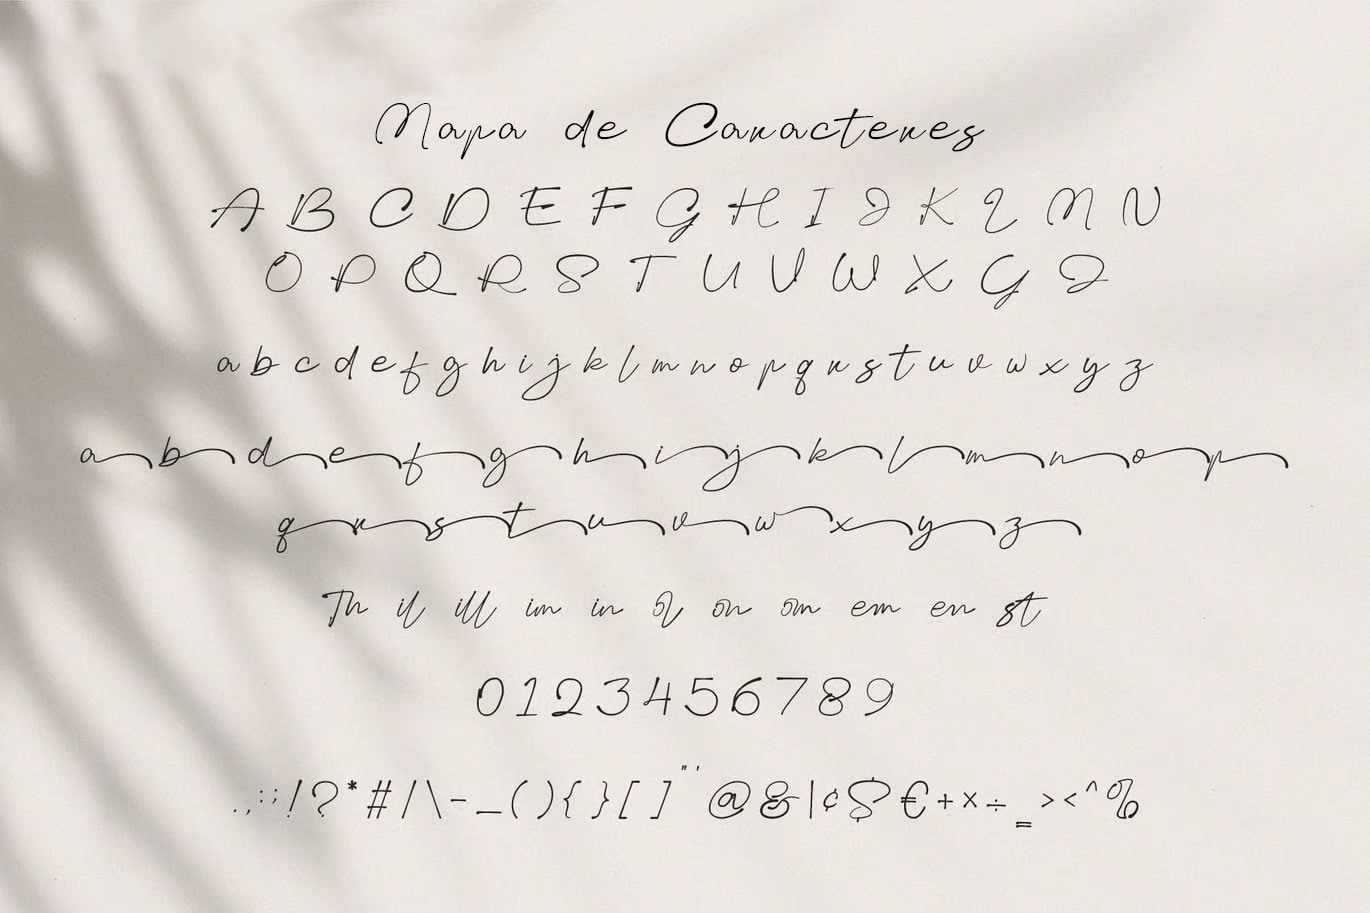 Mapa de Caracteres
A B C D E F G H I J K L M N
O P Q R S T U V W X Y Z
a b c d e f g h i j k l m n o p q r s t u v w x y z
a b d e f g h i j k l m n o p
q r s t u v w x y z
Th il ill im in ol on om em en st
0 1 2 3 4 5 6 7 8 9
. , : ; ! ? * # / \ - _ ( ) { } [ ] " ' @ & | ¢ $ € + × ÷ = > < ^ %